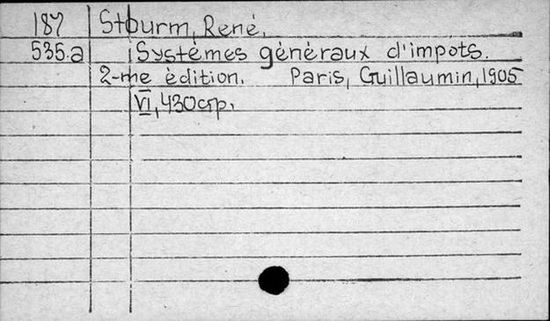 187 Stourm, René.
535.a Systèmes généraux d'impots.
2-me édition. Paris, Guillaumin, 1905
VI, 430 стр.